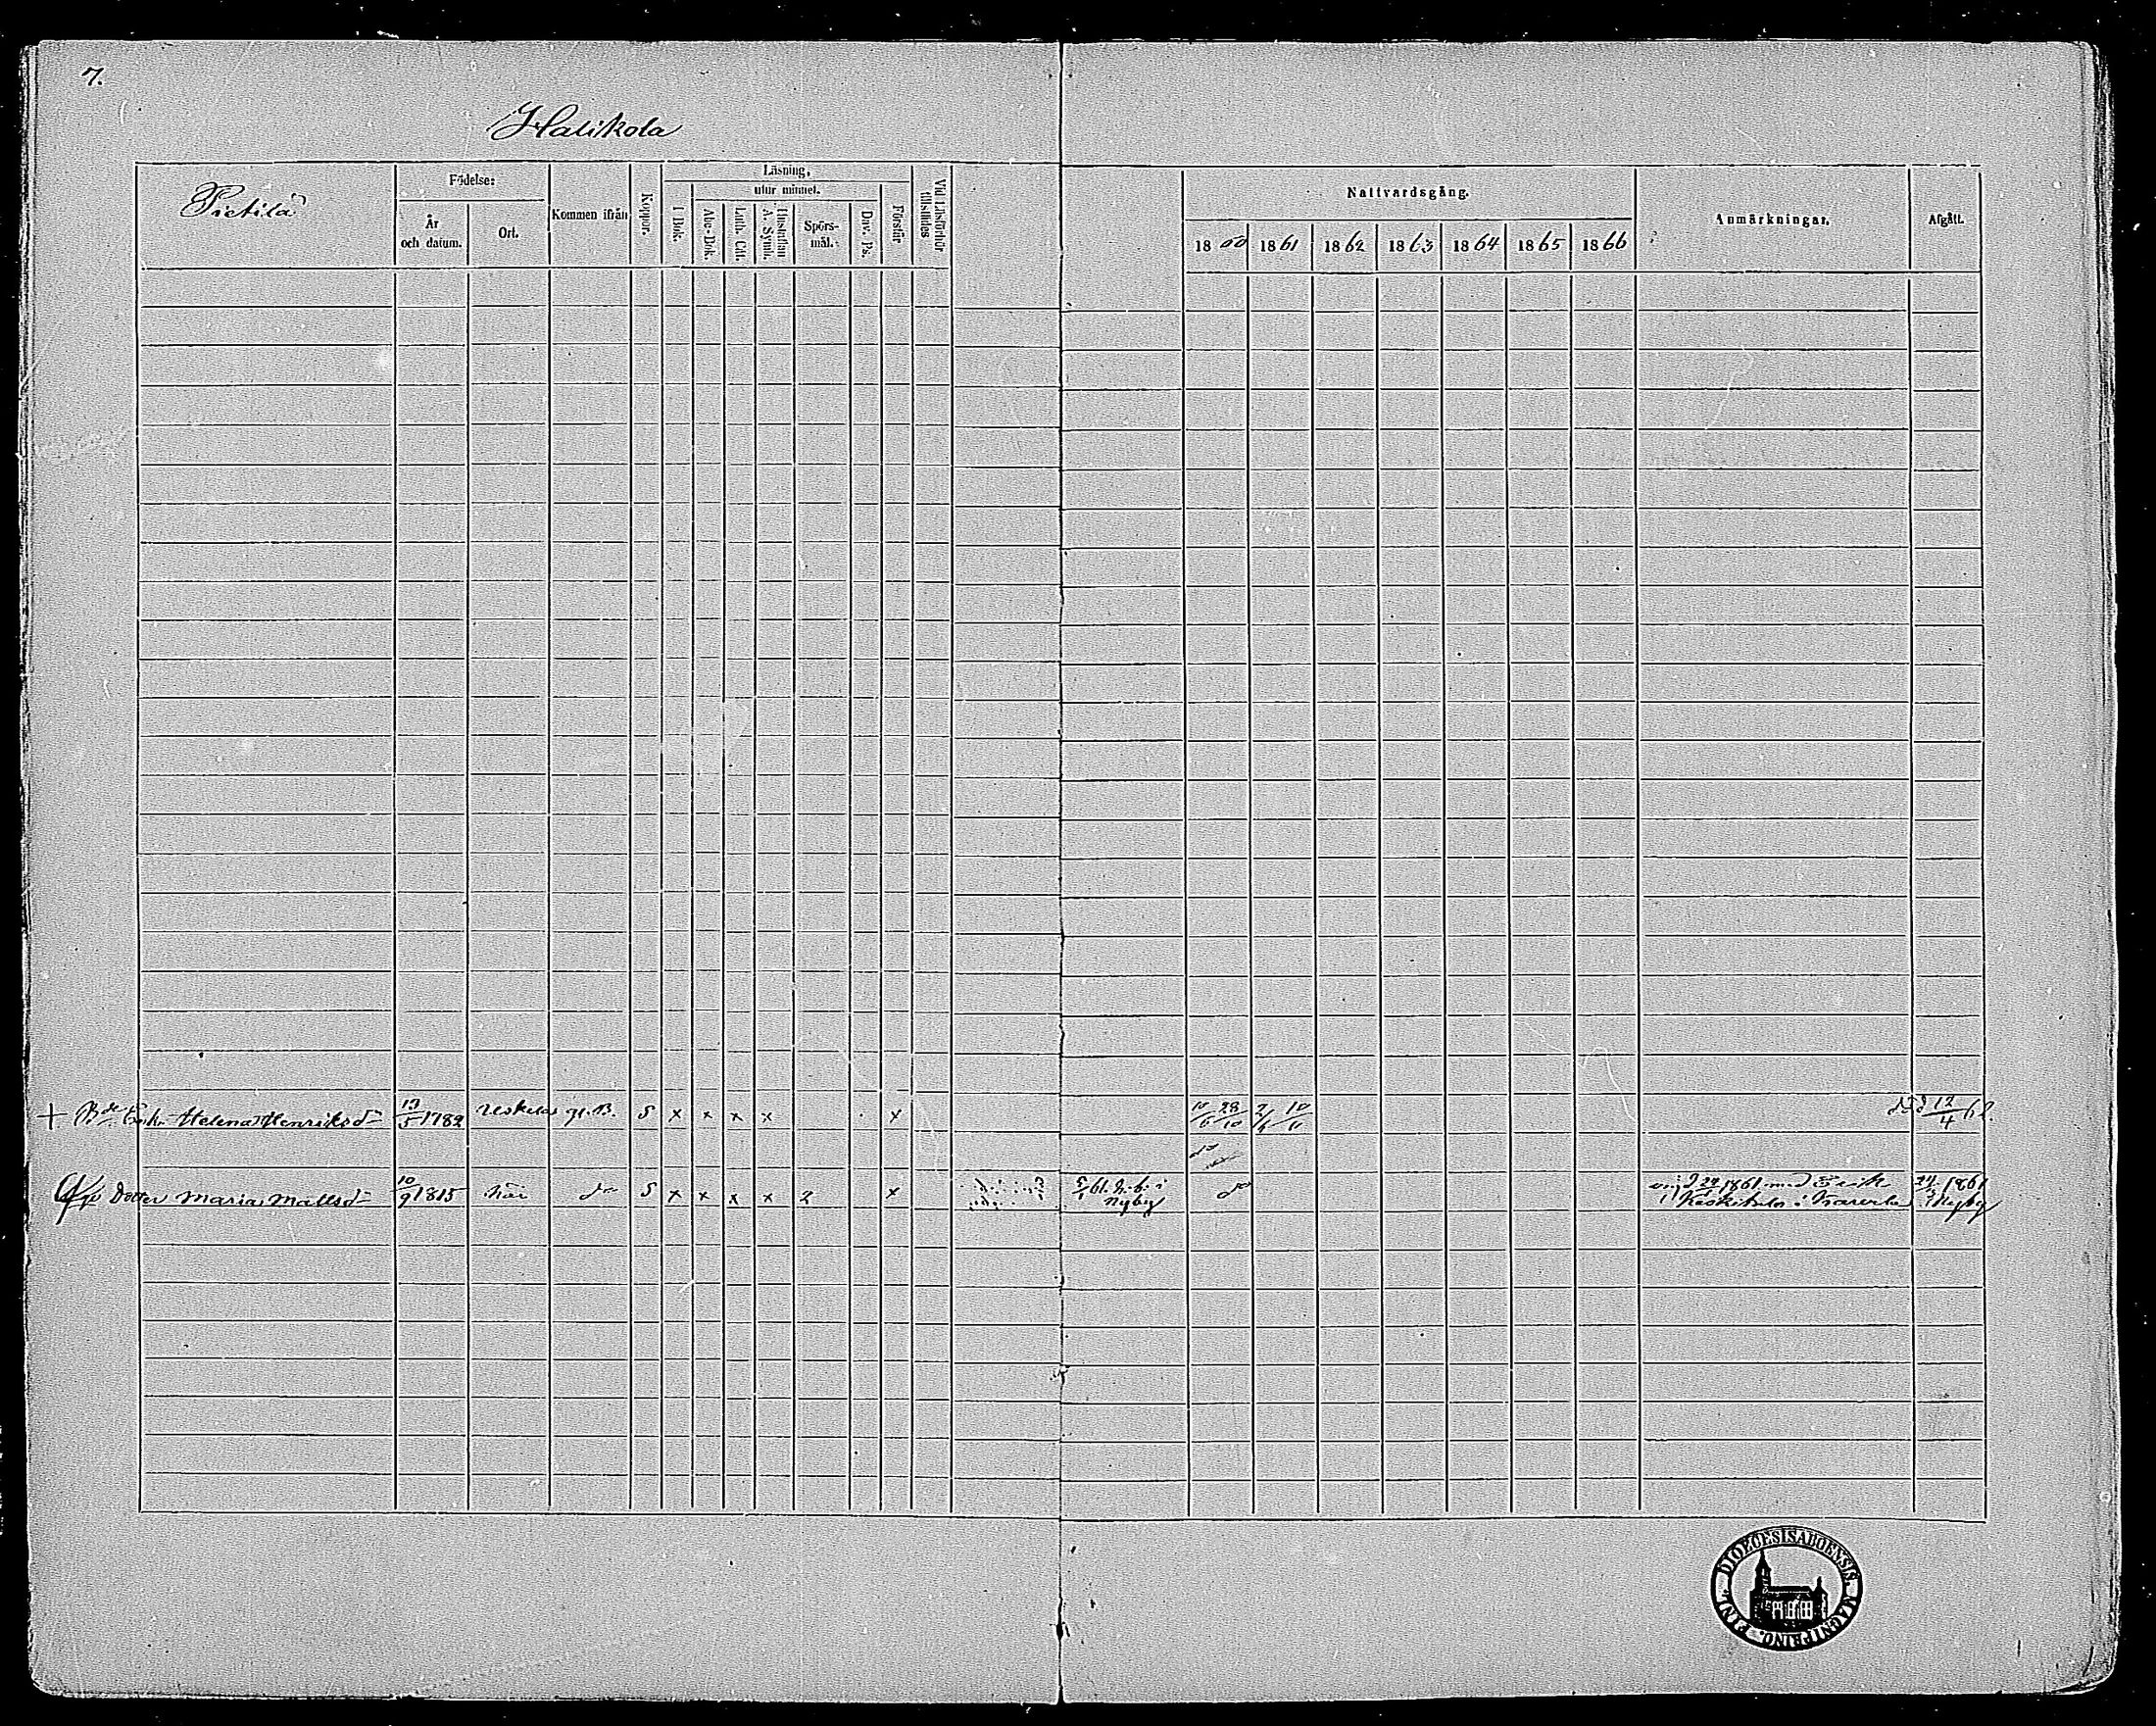 7.
Halikola
Pietilä
Födelse:
År
och datum.
Ort.
Kommen ifrån
Koppor.
Läsning,
I Bok.
utur minnet.
Abc-Bok.
Luth. Cat.
Hustaflan
A. Symb.
Spörs-
mål.
Dav. Ps.
Förstår
Vid Läsförhör
tillstädes
Nattvardsgång.
1860 1861 1862 1863 1864 1865 1866
Anmärkningar.
Afgått.
+ Helena Henriksd 13/5 1782 Uskela gl. B. S x x x x x 10/6 28/10 2/6 10/11 död 12/4 62.
do
Dotter Maria Mattsd 10/9 1815 här do S x x x x 2 x 5/1 61. i
Nyby
do
1861 med Erik
i
24/3 1861
Nyby
DIOECESIS ABOENSIS. MAGNI PRINC. FINL.